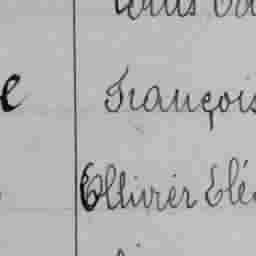 e François
Ollivier Elé